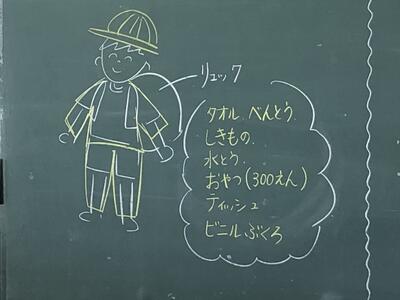 リュック
タオル.べんとう.
しきもの.
水とう.
おやつ(300えん)
ティッシュ
ビニルぶくろ